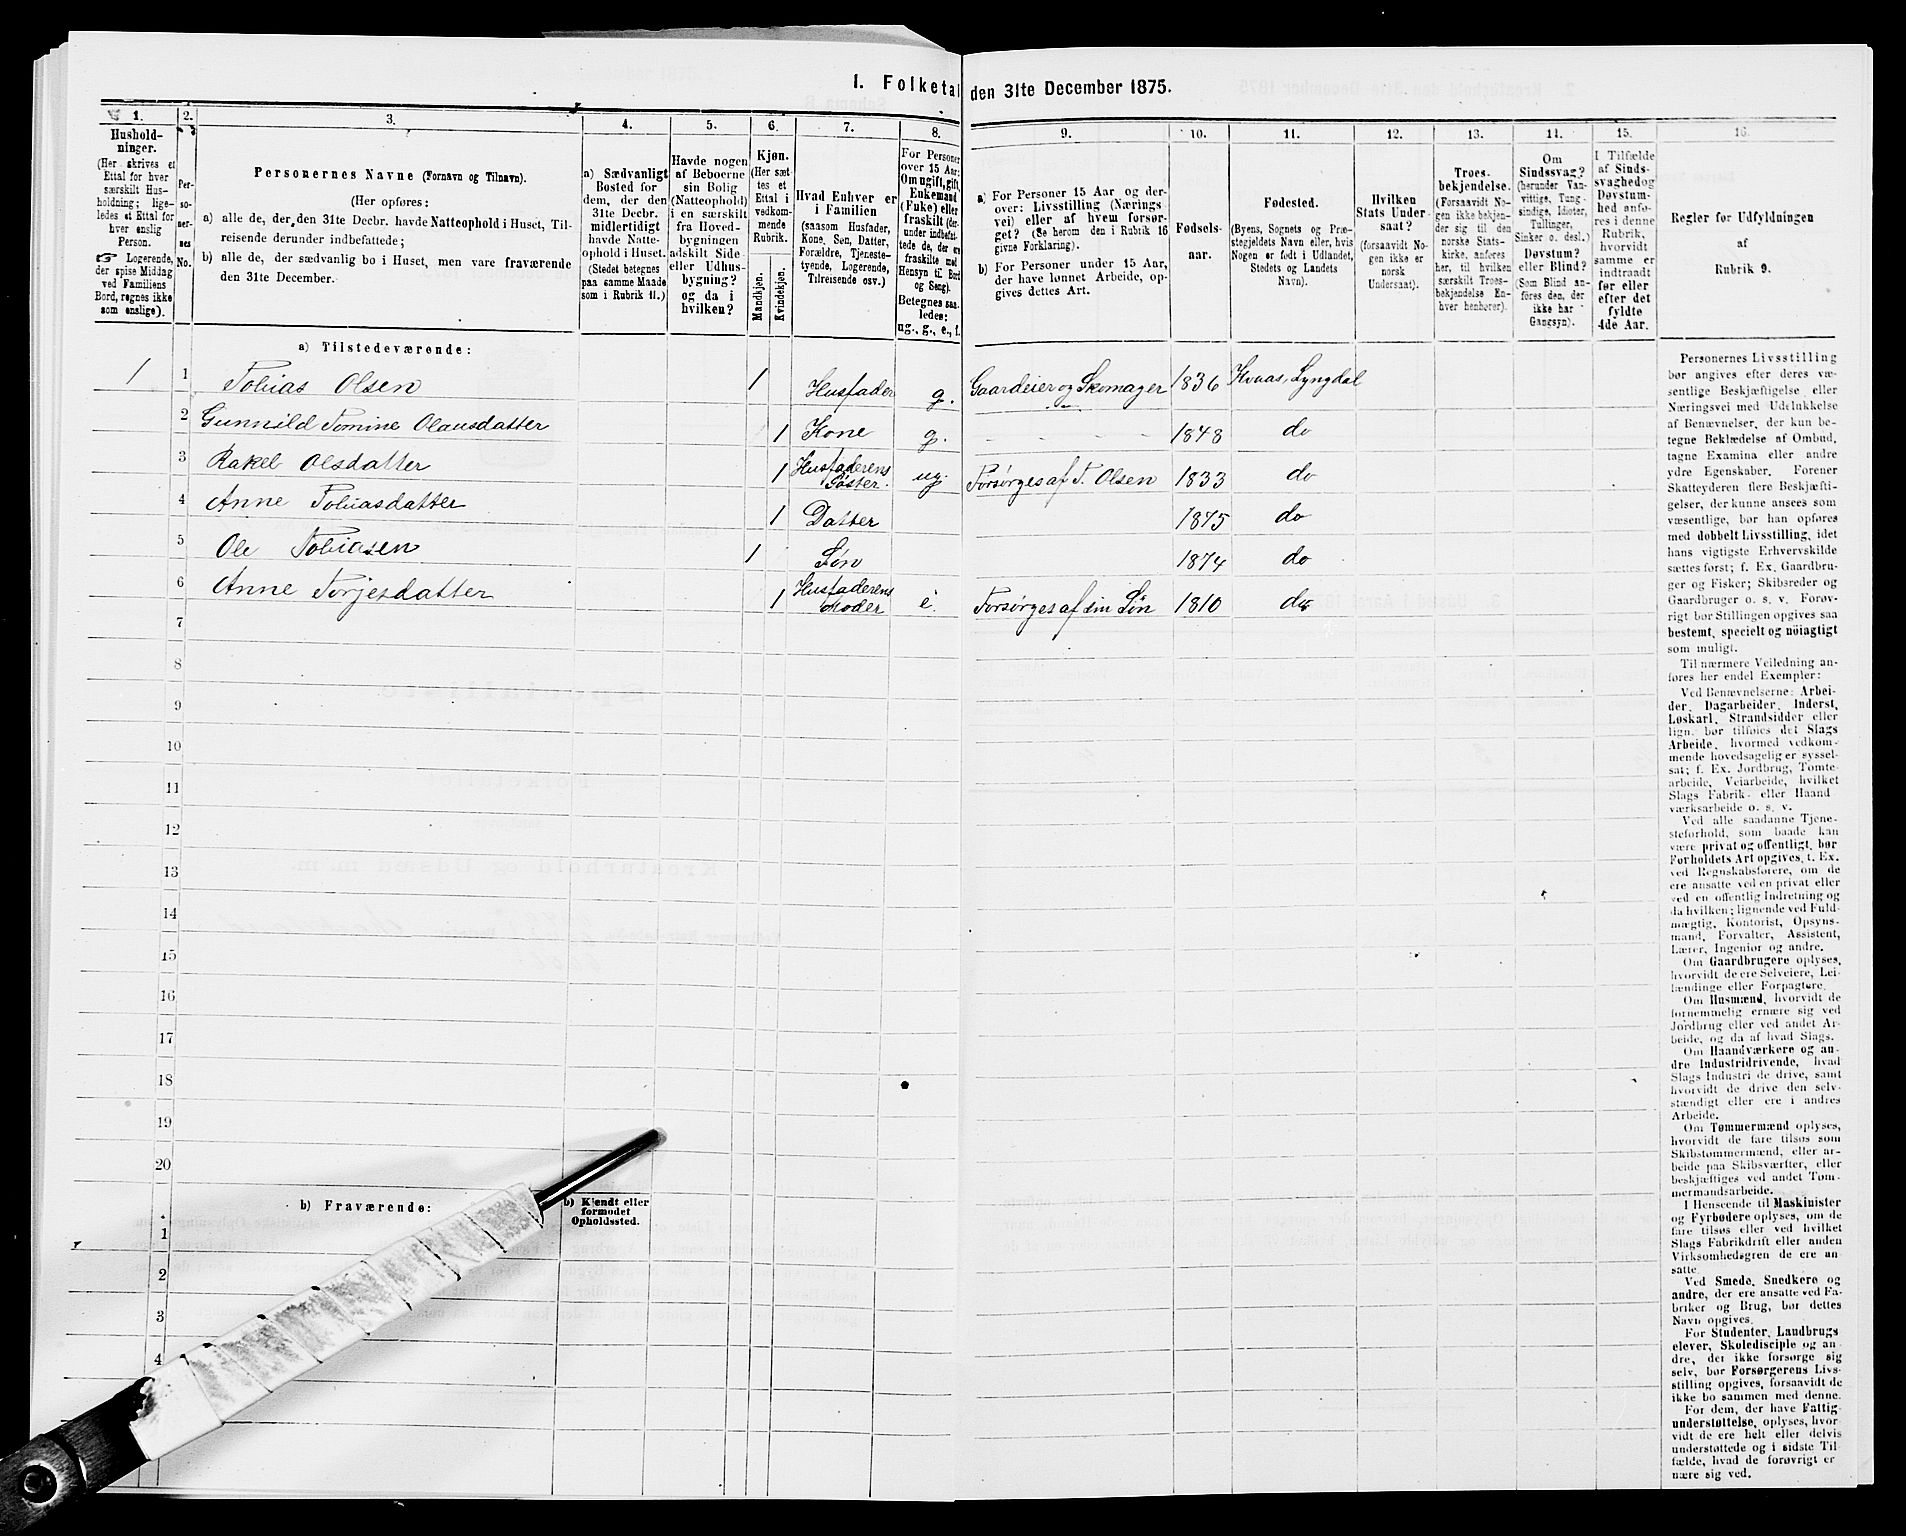 1. Folketal den 31te December 1875.
1. 2. 3. 4. 5. 6. 7. 8. 9. 10. 11. 12. 13. 14. 15. 16.
Hushold-
ninger.
(Her skrives et
Ettal for hver
særskilt Hus-
holdning; lige-
ledes et Ettal for
hver enslig
Person.
☞ Logerende,
der spise Middag
ved Familiens
Bord, regnes ikke
som enslige).
Per-
so-
ner-
nes
No.
Personernes Navne (Fornavn og Tilnavn).
(Her opføres:
a) alle de, der den 31te Decbr. havde Natteophold i Huset, Til-
reisende derunder indbefattede;
b) alle de, der sædvanlig bo i Huset, men vare fraværende
den 31te December.
a) Sædvanligt
Bosted for
dem, der den
31te Decbr.
midlertidigt
havde Natte-
ophold i Huset.
(Stedet betegnes
paa samme Maade
som i Rubrik 11.)
Havde nogen
af Beboerne
sin Bolig
(Natteophold)
i en særskilt
fra Hoved-
bygningen
adskilt Side-
eller Udhus-
bygning?
og da i
hvilken?
Kjøn.
(Her sæt-
tes et
Ettal i
vedkom-
mende
Rubrik.
Mandkjøn.
Kvindekjøn.
Hvad Enhver er
i Familien
(saasom Husfader,
Kone, Søn, Datter,
Forældre, Tjeneste-
tyende, Logerende,
Tilreisende osv.)
For Personer
over 15 Aar:
Om ugift, gift,
Enkemand
(Enke) eller
fraskilt (der-
under indbefat-
tede de, der ere
fraskilte med
Hensyn til Bord
og Seng).
Betegnes saa-
ledes:
ug., g., e., f.
a) For Personer 15 Aar og der-
over: Livsstilling (Nærings-
vei) eller af hvem forsør-
get? (Se herom den i Rubrik 16
givne Forklaring).
b) For Personer under 15 Aar,
der have lønnet Arbeide, op-
gives dettes Art.
Fødsels-
aar.
Fødested.
(Byens, Sognets og Præ-
stegjeldets Navn eller, hvis
Nogen er født i Udlandet,
Stedets og Landets
Navn).
Hvilken
Stats Under-
saat?
(forsaavidt No-
gen ikke er
norsk
Undersaat).
Troes-
bekjendelse.
(Forsaavidt No-
gen ikke bekjen-
der sig til den
norske Stats-
kirke, anføres
her, til hvilken
særskilt Troes-
bekjendelse En-
hver henhører).
Om
Sindssvag?
(herunder Van-
vittige, Tung-
sindige, Idioter,
Tullinger,
Sinker o. desl.)
Døvstum?
eller Blind?
(Som Blind an-
føres den, der
ikke har
Gangsyn).
I Tilfælde
af Sinds-
svaghed og
Døvstum-
hed anfø-
res i denne
Rubrik,
hvorvidt
samme er
indtraadt
før eller
efter det
fyldte
4de Aar.
Regler før Udfyldningen
af
Rubrik 9.
a) Tilstedeværende:
1 1 Tobias Olsen 1 Husfader g. Gaardeier og Skomager 1836 Kvaas, Lyngdal
2 Gunnild Tomine Olausdatter 1 Kone g. - - - - 1848 do
3 Rakel Olsdatter 1 Husfaderens Søster. ug. Forsørges af T. Olsen 1833 do
4 Anne Tobiasdatter 1 Datter 1875 do
5 Ole Tobiasen 1 Søn 1874 do
6 Anne Torjesdatter 1 Husfaderens Moder e. Forsørges af sin Søn 1810 do
7
8
9
10
11
12
13
14
15
16
17
18
19
20
b) Fraværende:
b) Kjendt eller
formodet
Opholdssted.
1
2
3
4
Personernes Livsstilling
bør angives efter deres væ-
sentlige Beskjæftigelse eller
Næringsvei med Udelukkelse
af Benævnelser, der kun be-
tegne Beklædelse af Ombud,
tagne Examina eller andre
ydre Egenskaber. Forener
Skatteyderen flere Beskjæfti-
gelser, der kunne ansees som
væsentlige, bør han opføres
med dobbelt Livsstilling, idet
hans vigtigste Erhvervskilde
sættes først; f. Ex. Gaardbru-
ger og Fisker; Skibsreder og
Gaardbruger o. s. v. Forøv-
rigt bør Stillingen opgives saa
bestemt, specielt og nøiagtigt
som muligt.
Til nærmere Veiledning an-
føres her endel Exempler:
Ved Benævnelserne: Arbei-
der, Dagarbeider, Inderst,
Løskarl, Strandsidder eller
lign. bør tilføies det Slags
Arbeide, hvormed vedkom-
mende hovedsagelig er syssel-
sat; f. Ex. Jordbrug, Tomte-
arbeide, Veiarbeide, hvilket
Slags Fabrik- eller Haand-
værksarbeide o. s. v.
Ved alle saadanne Tjene-
steforhold, som baade kan
være privat og offentligt, bør
Forholdets Art opgives, f. Ex.
ved Regnskabsførere, om de
ere ansatte ved en privat eller
ved en offentlig Indretning og
da hvilken; lignende ved Fuld-
mægtig, Kontorist, Opsyns-
mand, Forvalter, Assistent,
Lærer, Ingeniør og andre.
Om Gaardbrugere oplyses,
hvorvidt de ere Selveiere, Lei-
lændinge eller Forpagtere.
Om Husmænd, hvorvidt de
fornemmelig ernære sig ved
Jordbrug eller ved andet Ar-
beide, og da af hvad Slags.
Om Haandværkere og an-
dre Industridrivende, hvad
Slags Industri de drive, samt
hvorvidt de drive den selv-
stændigt eller ere i andres
Arbeide.
Om Tømmermænd oplyses,
hvorvidt de fare tilsøs som
Skibstømmermænd, eller ar-
beide paa Skibsværfter, eller
beskjæftiges ved andet Tøm-
mermandsarbeide.
I Henseende til Maskinister
og Fyrbødere oplyses, om de
fare tilsøs eller ved hvilket
Slags Fabrikdrift eller anden
Virksomhedsgren de ere an-
satte.
Ved Smede, Snedkere og
andre, der ere ansatte ved Fa-
briker og Brug, bør dettes
Navn opgives.
For Studenter, Landbrugs-
elever, Skoledisciple og an-
dre, der ikke forsørge sig
selv, bør Forsørgerens Livs-
stilling opgives, forsaavidt de
ikke bo sammen med denne.
For dem, der have Fattig-
understøttelse, oplyses, hvor-
vidt de ere helt eller delvis
understøttede og i sidste Til-
fælde, hvad de forøvrigt er-
nære sig ved.